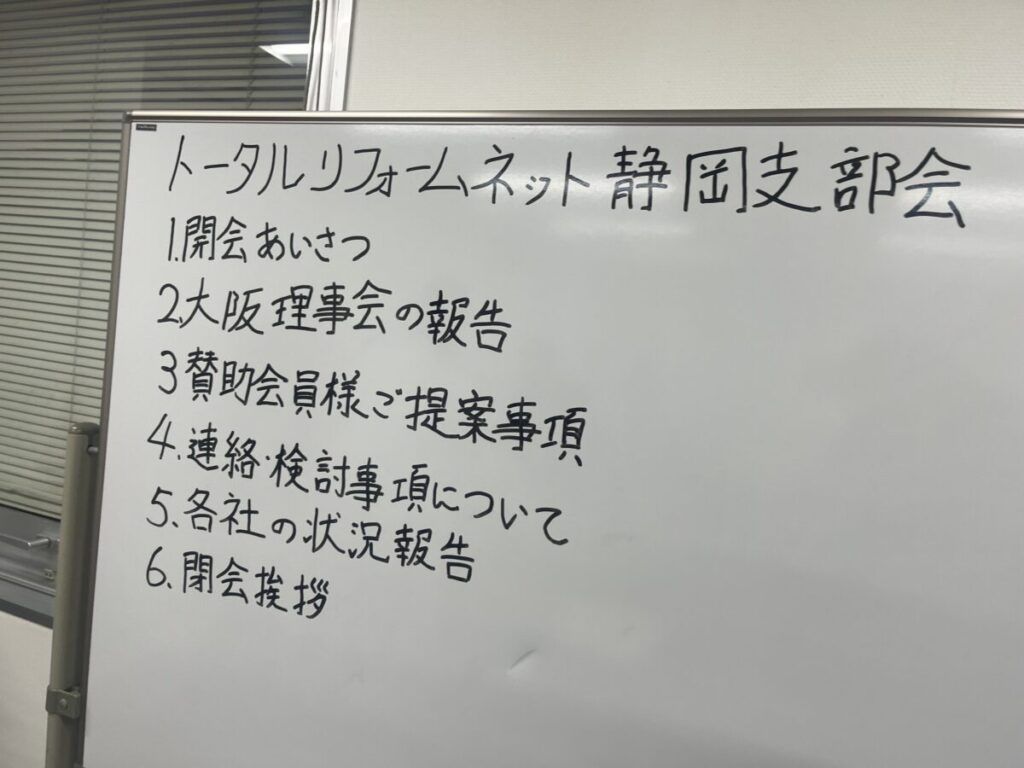 トータルリフォームネット静岡支部会
1.開会あいさつ
2.大阪理事会の報告
3 賛助会員様ご提案事項
4.連絡・検討事項について
5.各社の状況報告
6.閉会挨拶